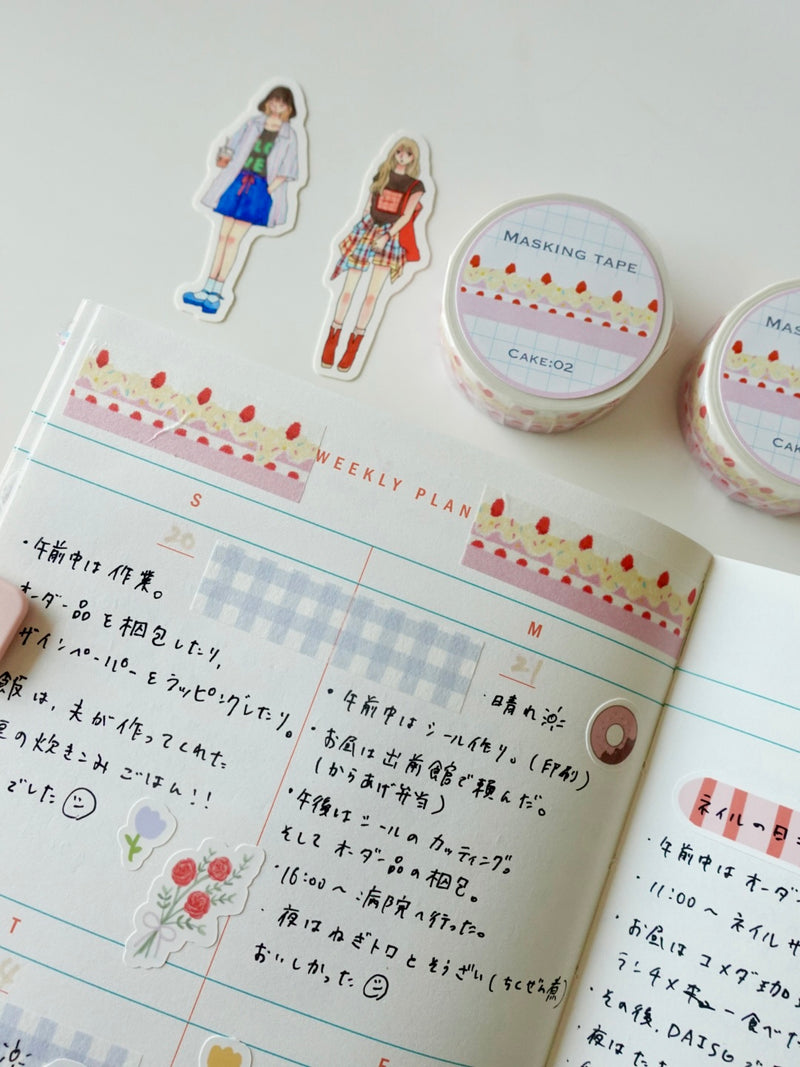 LO
VE
MASKING TAPE
CAKE:02
MAS
CAK
WEEKLY PLAN
S
20
・午前中は作業。
オーダー品を梱包したり、
ザインペーパーをラッピングしたり。
飯は、夫が作ってくれた
の炊きこみごはん!!
でした
M
21
・晴れ
・午前中はシール作り。(印刷)
・お昼は出前館で頼んだ。
(からあげ弁当)
・午後はシールのカッティング。
そしてオーダー品の梱包。
・16:00〜病院へ行った。
・夜はねぎトロとそうざい(ちくぜん煮)
おいしかった
ネイルの日
・午前中はオーダ
・11:00〜ネイルサ
・お昼はコメダ珈
ランチ×
一食べた
・その後、DAISOで
・夜はたち
T
F